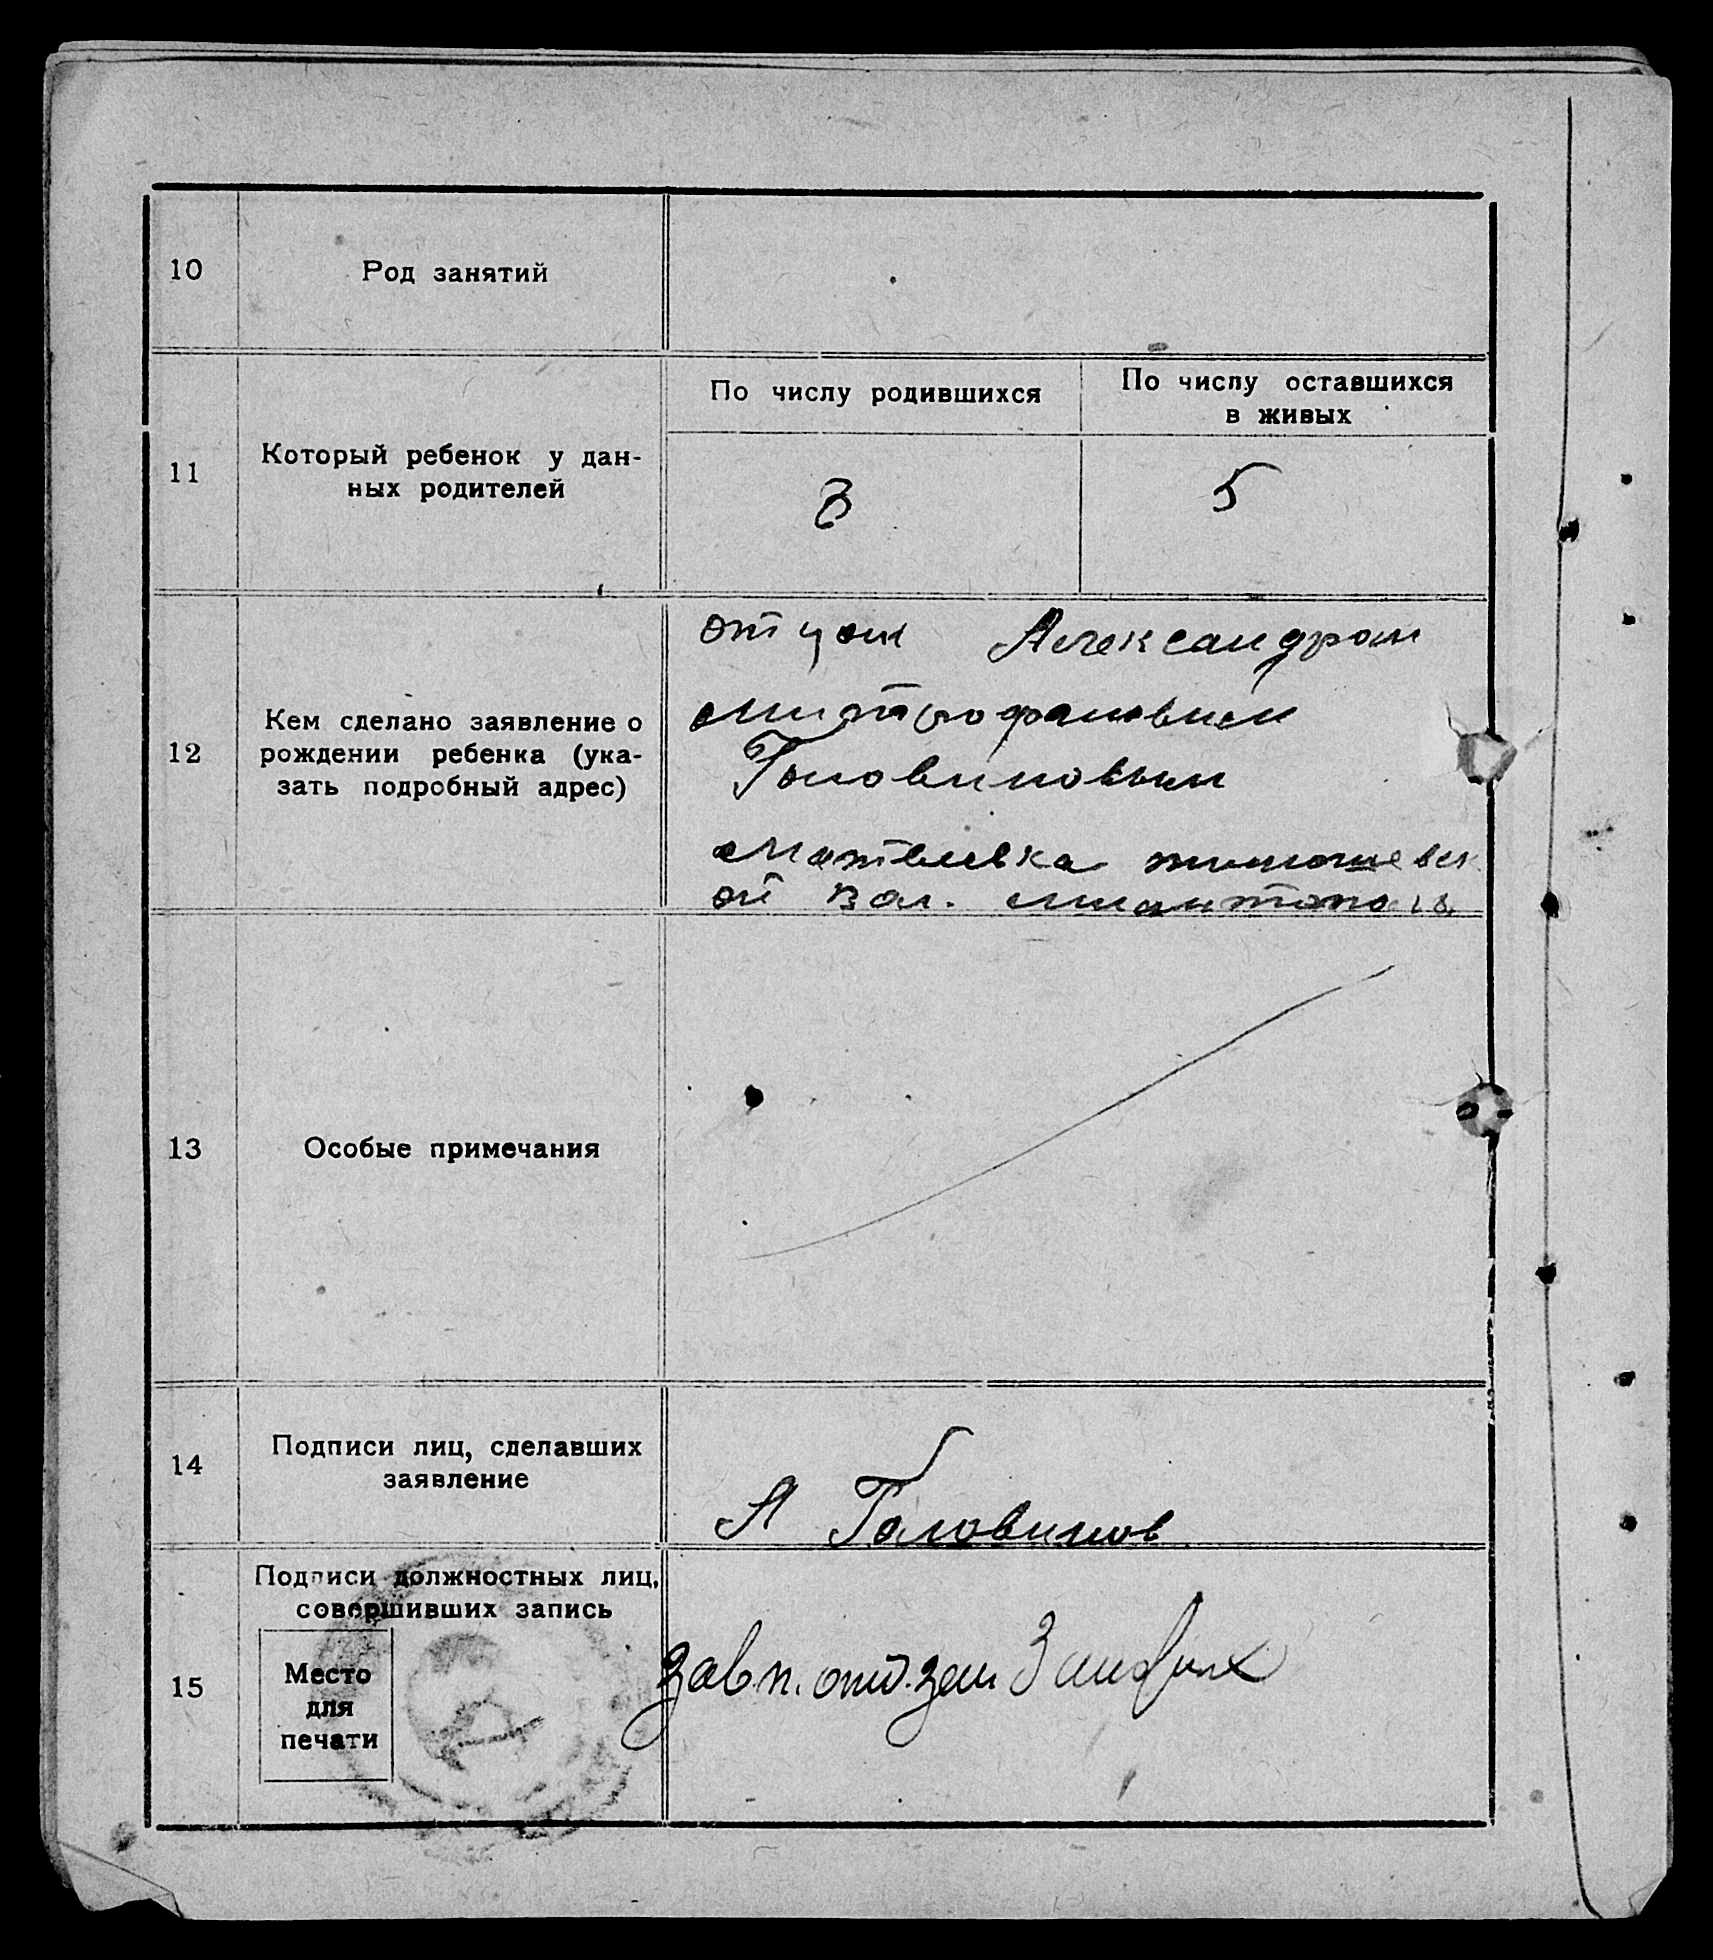 10
Род занятий
11
Который ребенок у дан-
ных родителей
По числу родившихся
По числу оставшихся
в живых
8
5
12
Кем сделано заявление о
рождении ребенка (ука-
зать подробный адрес)
отцом Александром
Митрофановым
Головиновым
Матвеевка
ой вол.
13
Особые примечания
14
Подписи лиц, сделавших
заявление
А Головинов
15
Подписи должностных лиц,
совершивших запись
Место
для
печати
зав.п.отд.